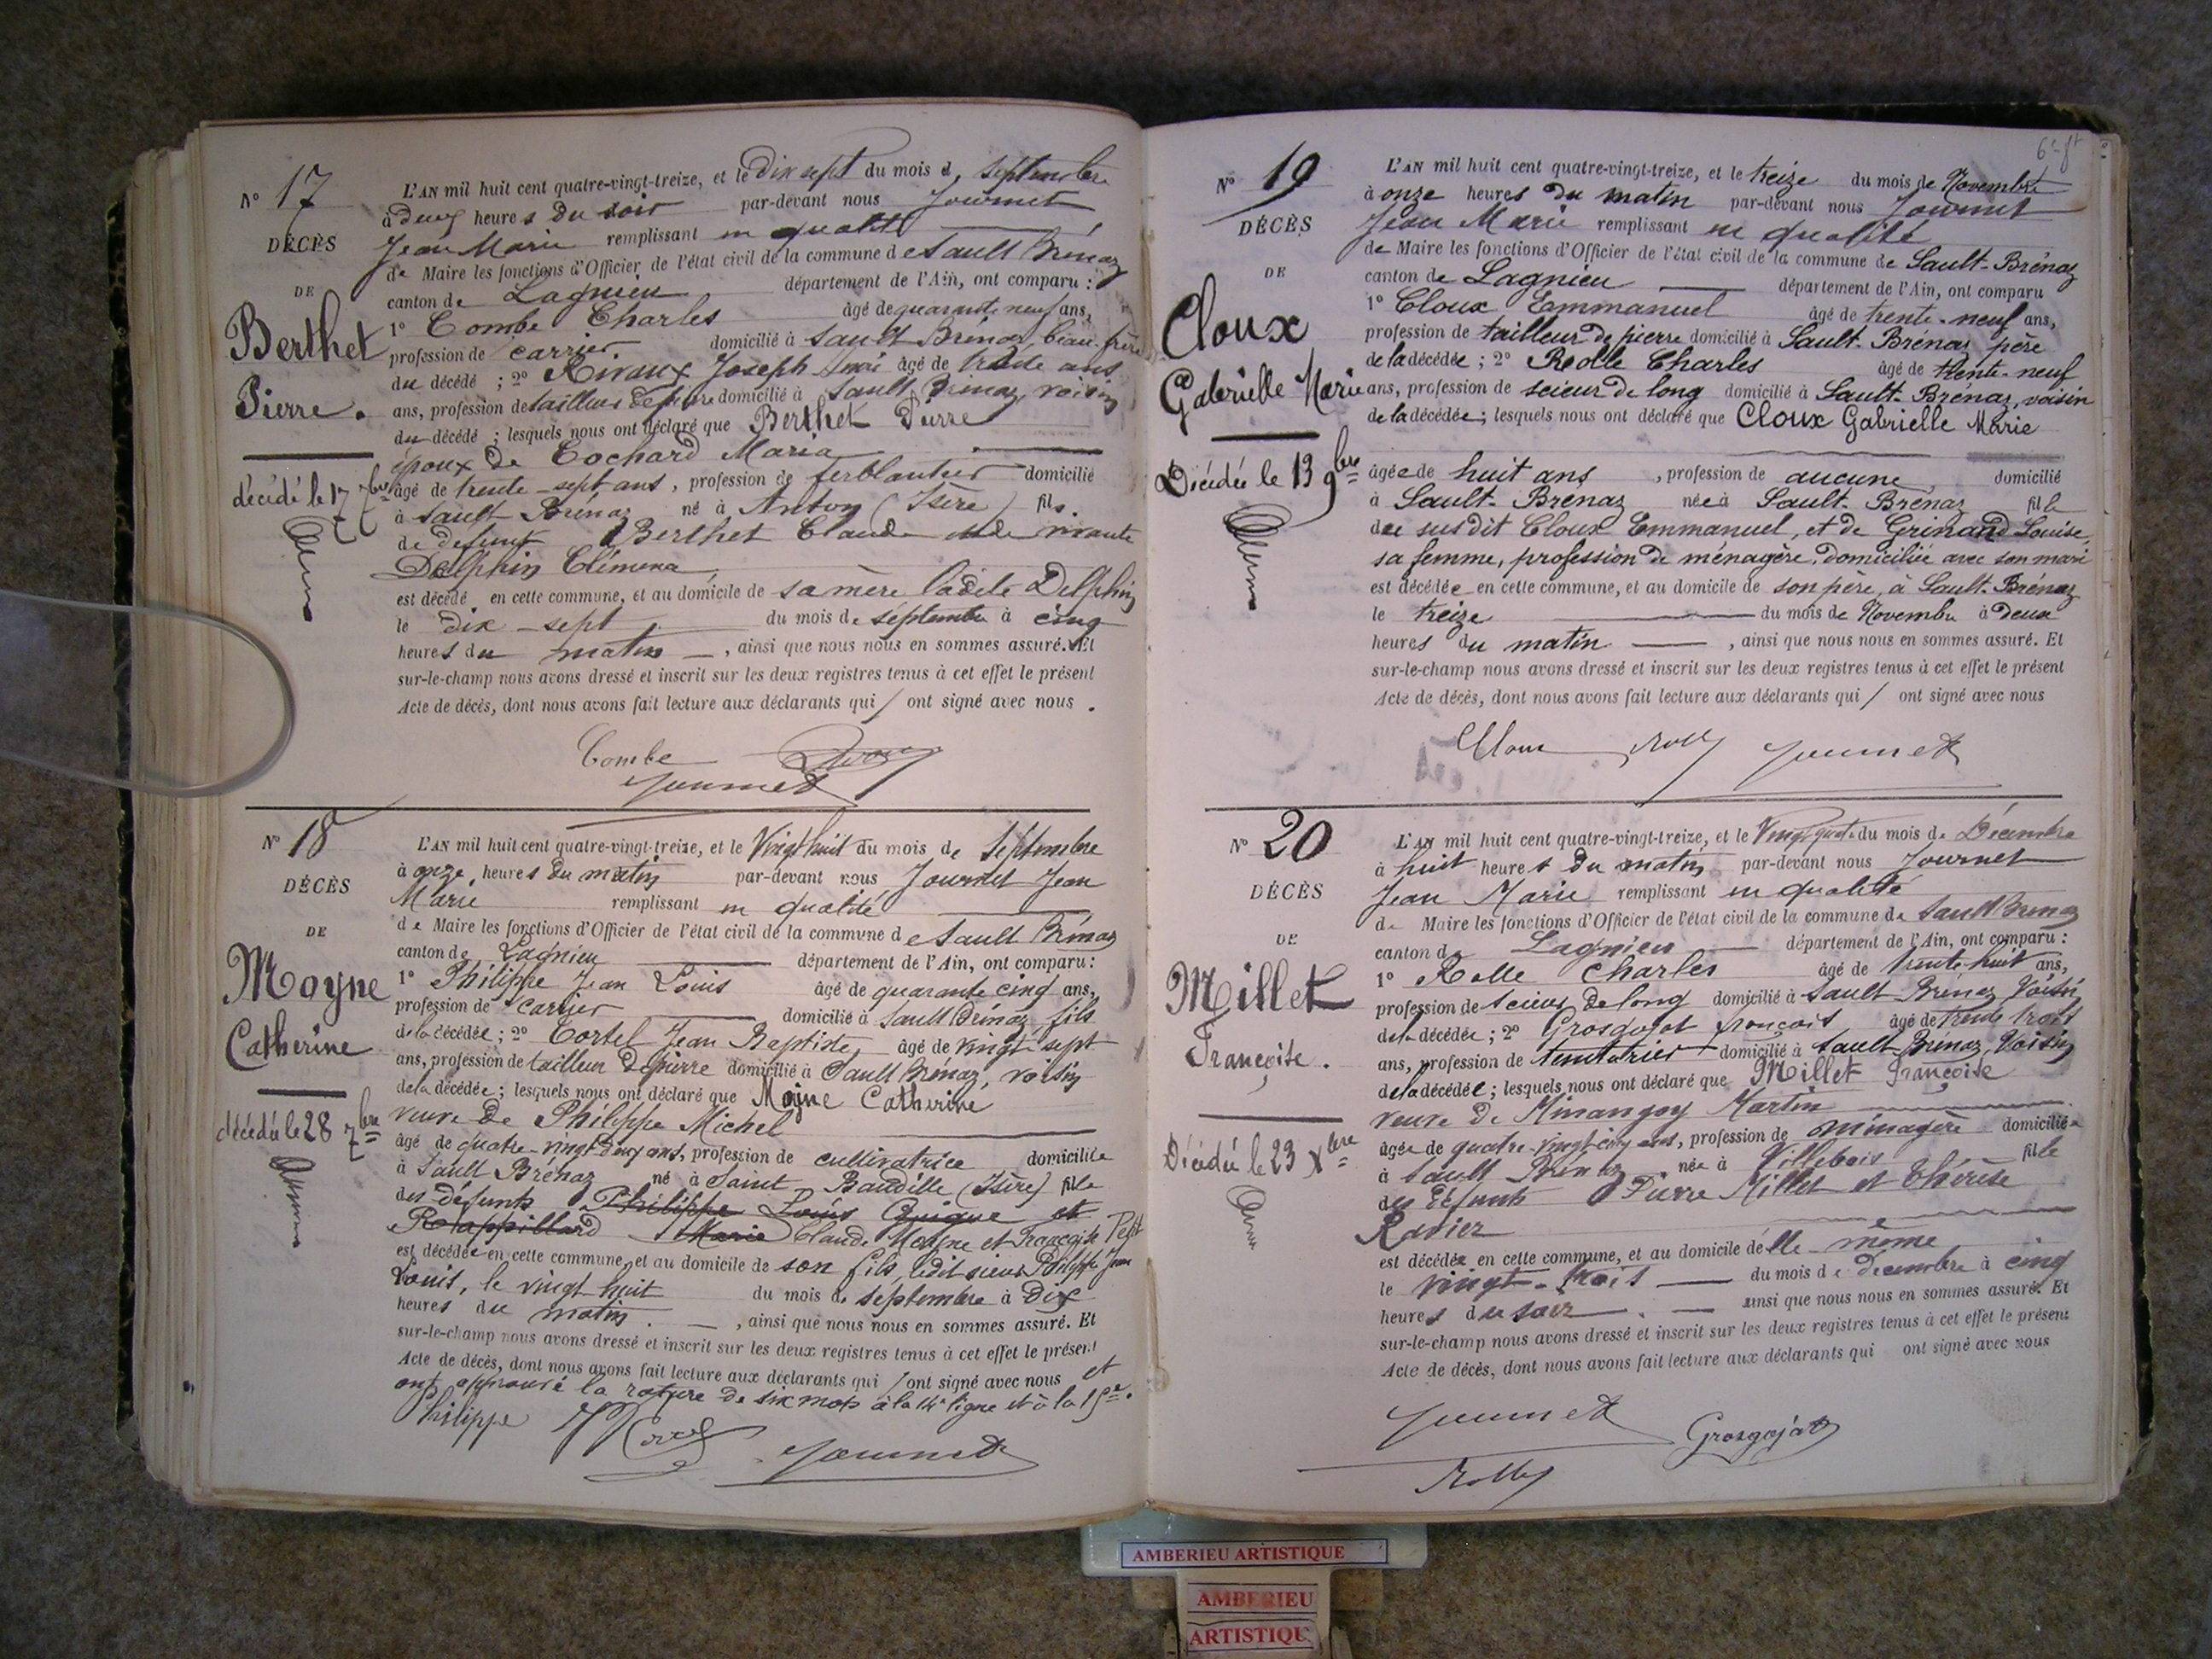 N° 17
DÉCÈS
DE
Berthet
Pierre.
décédé le 17 7bre
L'AN mil huit cent quatre-vingt-treize, et le Dix sept du mois de Septembre
à deux heures du soir par-devant nous Journet
Jean Marie remplissant en qualité
de Maire les fonctions d'Officier de l'état civil de la commune de Sault Brénaz
canton de Lagnieu département de l'Ain, ont comparu :
1° Combe Charles âgé de quarante neuf ans,
profession de carrier domicilié à Sault Brénaz, beau-frère
du décédé ; 2° Rivaux Joseph âgé de trente ans
ans, profession de tailleur de pierre domicilié à Sault Brénaz, voisin
du décédé ; lesquels nous ont déclaré que Berthet Pierre
époux de Cochard Maria
âgé de trente-sept ans, profession de ferblantier domicilié
à Sault Brénaz né à Anton (Isère) fils
de défunt Berthet Claude et de vivante
Delphin Clémena
est décédé en cette commune, et au domicile de sa mère ladite Delphin
le dix-sept du mois de Septembre à cinq
heures du matin, ainsi que nous nous en sommes assuré. Et
sur-le-champ nous avons dressé et inscrit sur les deux registres tenus à cet effet le présent
Acte de décès, dont nous avons fait lecture aux déclarants qui / ont signé avec nous.
Combe
Journet
N° 18
DÉCÈS
DE
Moyne
Catherine
décédée le 28 7bre
L'AN mil huit cent quatre-vingt-treize, et le Vingt huit du mois de Septembre
à onze heures du matin par-devant nous Journet Jean
Marie remplissant en qualité
de Maire les fonctions d'Officier de l'état civil de la commune de Sault Brénaz
canton de Lagnieu département de l'Ain, ont comparu :
1° Philippe Jean Louis âgé de quarante cinq ans,
profession de carrier domicilié à Sault Brénaz, fils
de la décédée ; 2° Cortel Jean Baptiste, âgé de vingt-sept
ans, profession de tailleur de pierre domicilié à Sault Brénaz, voisin
de la décédée ; lesquels nous ont déclaré que Moyne Catherine
veuve de Philippe Michel
âgé de quatre-vingt deux ans, profession de cultivatrice domiciliée
à Sault Brénaz né à Saint Baudille (Isère) fille
des défunts Philippe Louis Quique et
Rappillard Marie Claude Moyne et Françoise Petit
est décédée en cette commune, et au domicile de son fils, ledit sieur Philippe Jean
Louis, le vingt huit du mois de Septembre à Dix
heures du matin, ainsi que nous nous en sommes assuré. Et
sur-le-champ nous avons dressé et inscrit sur les deux registres tenus à cet effet le présent
Acte de décès, dont nous avons fait lecture aux déclarants qui / ont signé avec nous et
ont approuvé la rature de six mots à la 14e ligne et à la 15e.
Philippe
Journet
N° 19
DÉCÈS
DE
Cloux
Gabrielle Marie
Décédée le 13 9bre
L'AN mil huit cent quatre-vingt-treize, et le treize du mois de Novembre
à onze heures du matin par-devant nous Journet
Jean Marie remplissant en qualité
de Maire les fonctions d'Officier de l'état civil de la commune de Sault-Brénaz
canton de Lagnieu département de l'Ain, ont comparu
1° Cloux Emmanuel âgé de trente-neuf ans,
profession de tailleur de pierre domicilié à Sault-Brénaz, père
de la décédée ; 2° Rolle Charles âgé de trente-neuf
ans, profession de scieur de long domicilié à Sault-Brénaz, voisin
de la décédée ; lesquels nous ont déclaré que Cloux Gabrielle Marie
âgée de huit ans, profession de aucune domicilié
à Sault-Brénaz née à Sault-Brénaz fille
du susdit Cloux Emmanuel, et de Grinand Louise,
sa femme, profession de ménagère, domiciliée avec son mari
est décédée en cette commune, et au domicile de son père, à Sault-Brénaz
le treize du mois de Novembre à Deux
heures du matin, ainsi que nous nous en sommes assuré. Et
sur-le-champ nous avons dressé et inscrit sur les deux registres tenus à cet effet le présent
Acte de décès, dont nous avons fait lecture aux déclarants qui / ont signé avec nous
Cloux Rolle Journet
N° 20
DÉCÈS
DE
Millet
Françoise.
Décédée le 23 Xbre
L'AN mil huit cent quatre-vingt-treize, et le Vingt quatre du mois de Décembre
à huit heures du matin par-devant nous Journet
Jean Marie remplissant en qualité
de Maire les fonctions d'Officier de l'état civil de la commune de Sault Brénaz
canton de Lagnieu département de l'Ain, ont comparu :
1° Rolle Charles âgé de trente-huit ans,
profession de scieur de long domicilié à Sault-Brénaz Voisin
de la décédée ; 2° Grosgojat François âgé de trente trois
ans, profession de teinturier domicilié à Sault-Brénaz, Voisin
de la décédée ; lesquels nous ont déclaré que Millet Françoise
veuve de Minangoy Martin
âgée de quatre-vingt-cinq ans, profession de ménagère domiciliée
à Sault Brénaz née à Villebois fille
des défunts Pierre Millet et Thérèse
Ravier
est décédée en cette commune, et au domicile d'elle-même
le vingt-trois du mois de décembre à cinq
heures du soir ainsi que nous nous en sommes assuré. Et
sur-le-champ nous avons dressé et inscrit sur les deux registres tenus à cet effet le présent
Acte de décès, dont nous avons fait lecture aux déclarants qui ont signé avec nous
Journet
Grosgojat
Rolle
AMBERIEU ARTISTIQUE
AMBERIEU
ARTISTIQU